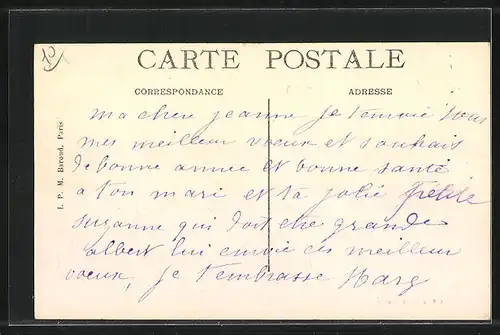 CARTE POSTALE
CORRESPONDANCE
ADRESSE
ma chere jeanne je t'envoie tous
mes meilleur voeux et souhais
de bonne annee et bonne santé
a ton mari et ta jolie petite
suzanne qui doit etre grande
albert lui envoie ces meilleur
voeux, je t'embrasse
I. P. M. Paris